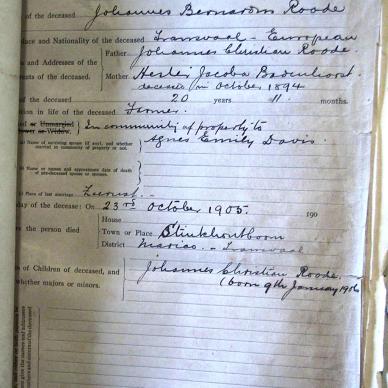 of the deceased Johannes Bernardus Roode
place and Nationality of the deceased Transvaal - European
Father Johannes Christian Roode.
and Addresses of the
Parents of the deceased. Mother Hester Jacoba Badenhorst
deceased in October 1894
of the deceased 20 years 11 months.
tion in life of the deceased Farmer.
ed or Unmarried In community of property to
or Widow.
(a) Name of surviving spouse (if any), and whether married in community of property or not. Agnes Emily Davis.
(b) Name or names and approximate date of death of pre-deceased spouse or spouses.
(c) Place of last marriage. Zeerust.
day of the decease: On 23rd October 1905. 190
House
re the person died Town or Place Stinkhoutboom
District Marico - Transvaal
s of Children of deceased, and Johannes Christian Roode.
whether majors or minors. (born 9th January 1906